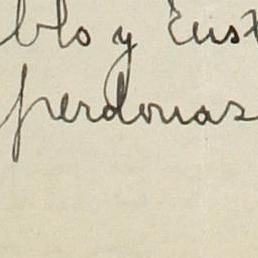 blo y Eust
perdonas